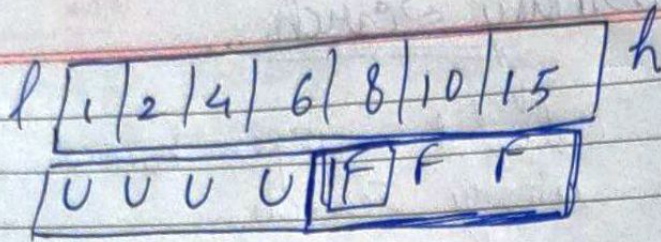 l 1 2 4 6 8 10 15 h
U U U U F F F